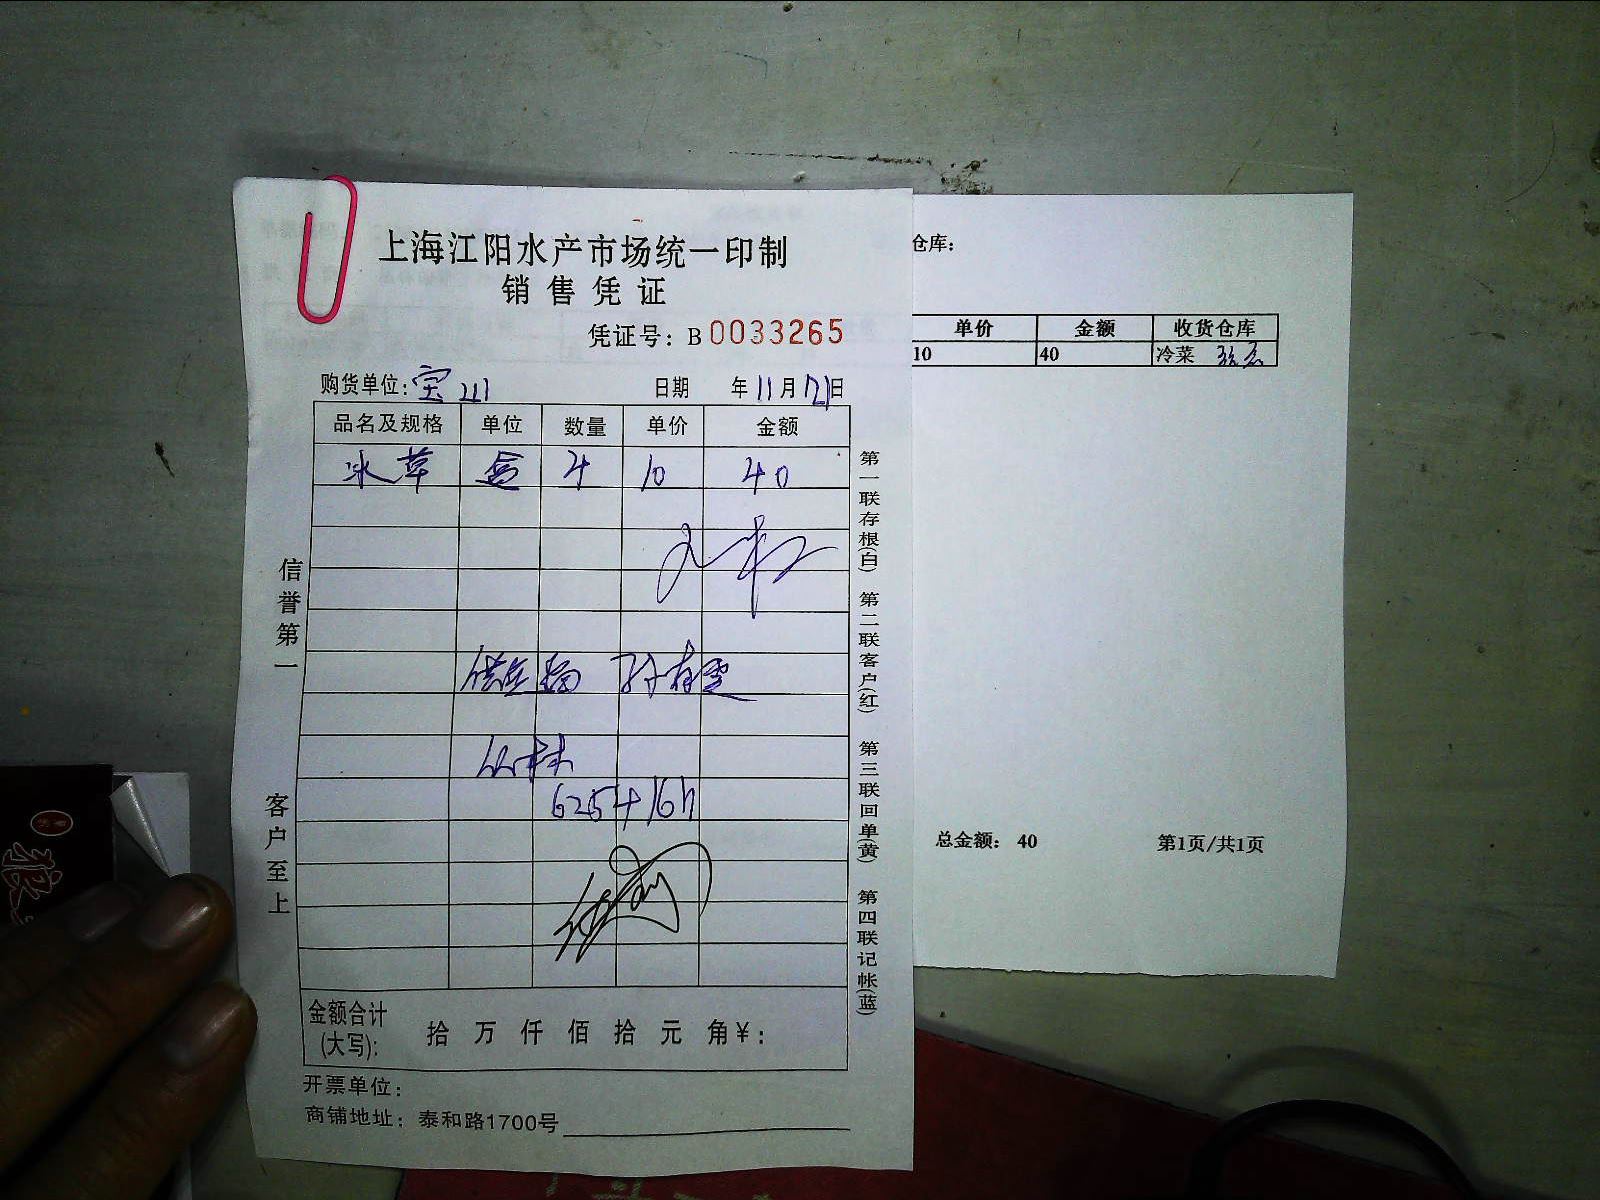 上海江阳水产市场统一印制
销售凭证
凭证号：B 0033265
购货单位：宝山 日期 年11月21日
品名及规格 单位 数量 单价 金额
冰草 盒 4 10 40
供应商 孙有雯
6254 16h
金额合计
(大写)：
拾 万 仟 佰 拾 元 角 ¥：
开票单位：
商铺地址：泰和路1700号
信誉第一
客户至上
第一联存根(白) 第二联客户(红) 第三联回单(黄) 第四联记帐(蓝)
仓库：
单价 金额 收货仓库
10 40 冷菜
总金额： 40 第1页/共1页